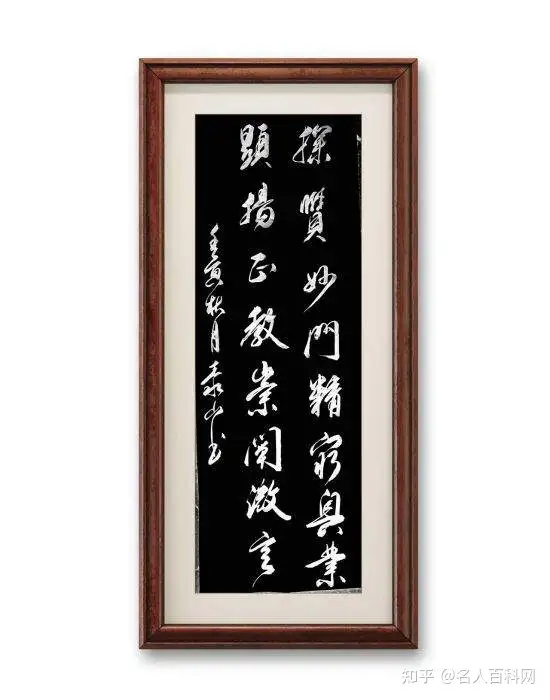 探賾妙門精窮奧業
顯揚正教崇闡微言
壬寅秋月泰山书
知乎 @名人百科网